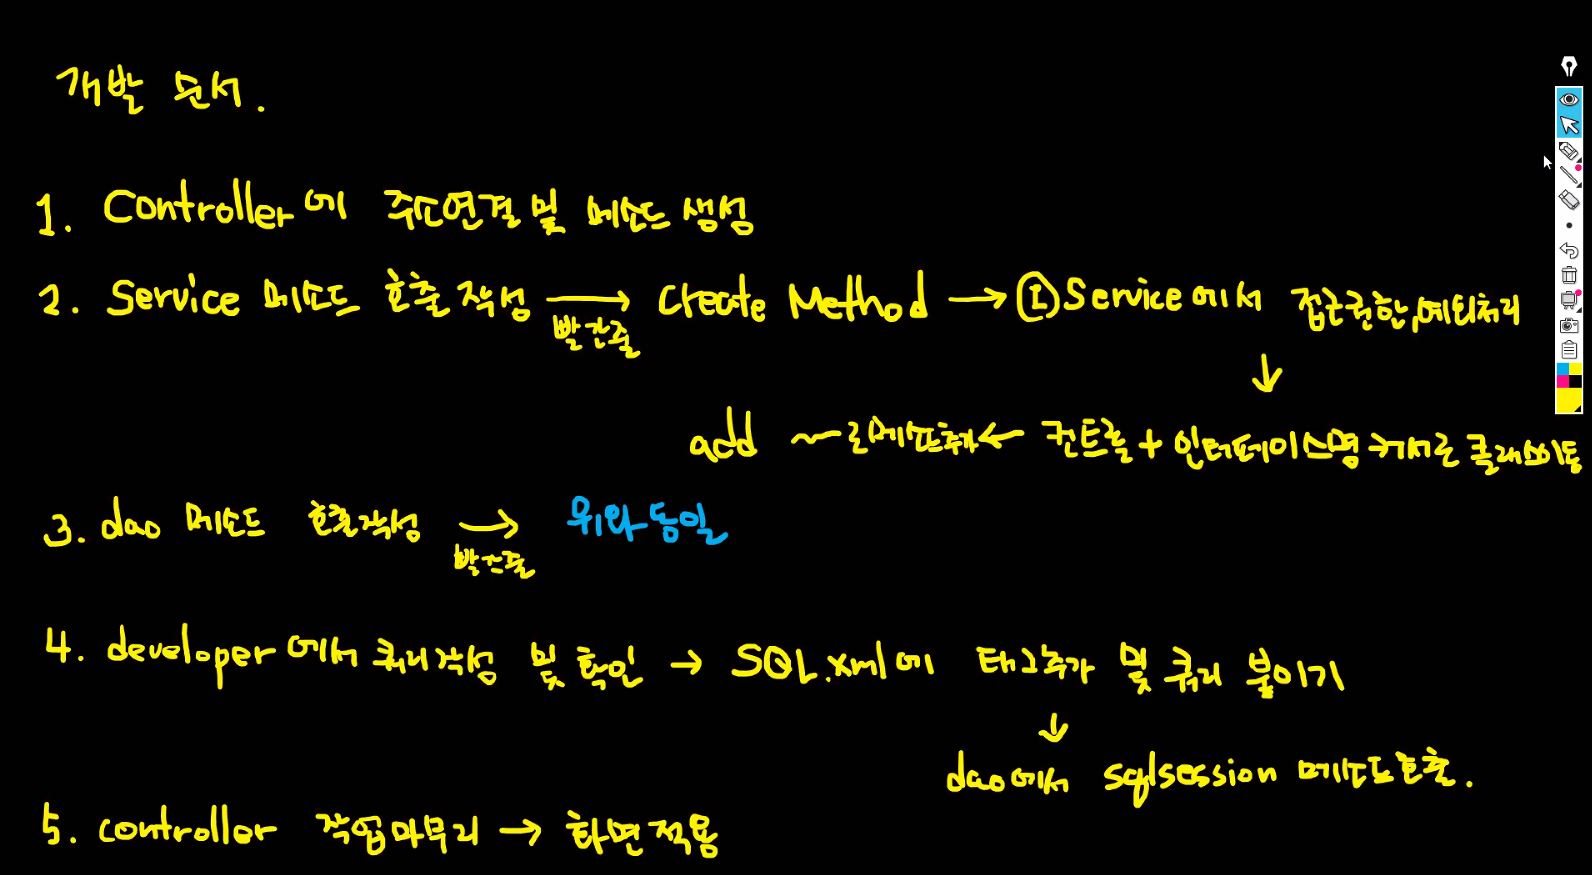 개발 순서.
1. Controller에 주소연결 및 메소드 생성
2. Service 메소드 호출 작성 → Create Method → ⓘService에서 접근권한, 예외처리
빨간줄
↓
add ~로 메소드추가 ← 컨트롤 + 인터페이스명 커서로 클래스이동
3. dao 메소드 호출작성 → 위와 동일
빨간줄
4. developer에서 쿼리작성 및 확인 → SQL.xml에 태그추가 및 쿼리 붙이기
↓
dao에서 sqlsession 메소드호출.
5. controller 작업마무리 → 화면적용